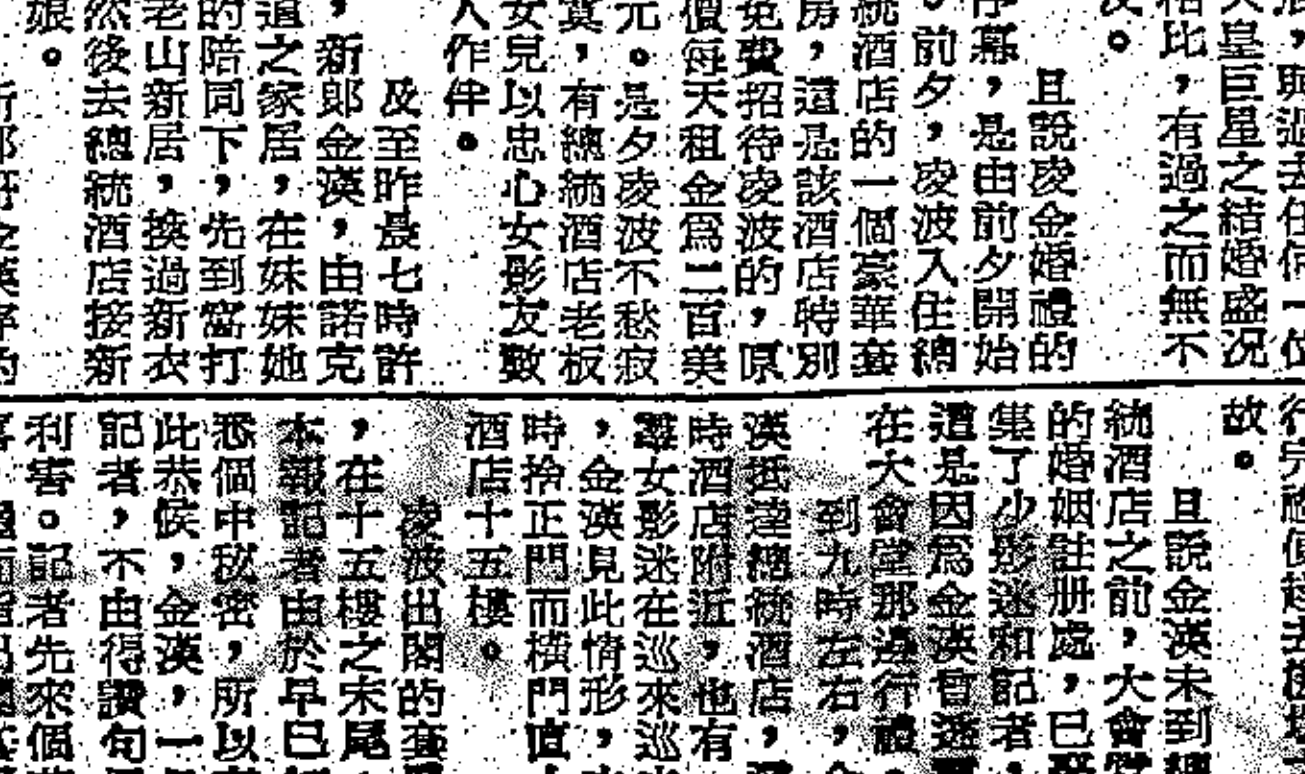 浪，與過去任何一位
大皇巨星之結婚盛況
相比，有過之而無不
及。
且說凌金婚禮的
序幕，是由前夕開始
。前夕，凌波入住總
統酒店的一個豪華套
房，這是該酒店特別
免費招待凌波的，原
價每天租金爲二百美
元。是夕凌波不愁寂
寞，有總統酒店老板
女兒以忠心女影友數
人作伴。
及至昨晨七時許
，新郎金漢，由諾克
道之家居，在妹妹她
的陪同下，先到窩打
老山新居，換過新衣
然後去總統酒店接新
娘。
行完禮便趕去機場
故。
且說金漢未到總
統酒店之前，大會堂
的婚姻註册處，已
集了少影迷和記者，
這是因爲金漢曾透
在大會堂那邊行禮。
到九時左右，金
漢抵達總統酒店，
時酒店附近，也有
羣女影迷在巡來巡
，金漢見此情形，
時捨正門而橫門直
酒店十五樓。
凌波出閣的套
，在十五樓之末尾，
本報記者由於早已
悉個中秘密，所以
此恭候，金漢，一
記者，不由得讚句
利害。記者先來個